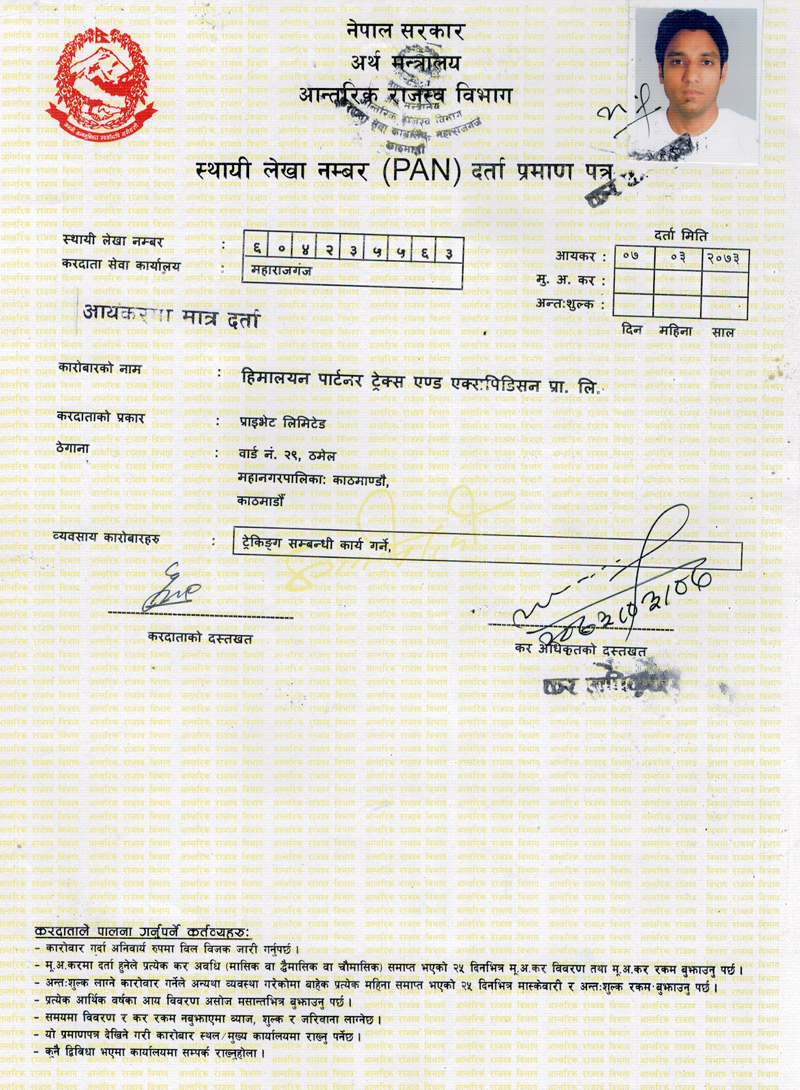 नेपाल सरकार
अर्थ मन्त्रालय
आन्तरिक राजस्व विभाग
स्थायी लेखा नम्बर (PAN) दर्ता प्रमाण पत्र
स्थायी लेखा नम्बर : ६०४२३५५६३
करदाता सेवा कार्यालय : महाराजगंज
दर्ता मिति
आयकर : ०७ ०३ २०७३
मु. अ. कर :
अन्तःशुल्क :
दिन महिना साल
आयकरमा मात्र दर्ता
कारोबारको नाम : हिमालयन पार्टनर ट्रेक्स एण्ड एक्सपिडिसन प्रा. लि.
करदाताको प्रकार : प्राइभेट लिमिटेड
ठेगाना : वार्ड नं. २९, ठमेल
महानगरपालिका: काठमाण्डौ,
काठमाडौँ
व्यवसाय कारोबारहरु : ट्रेकिङ्ग सम्बन्धी कार्य गर्ने,
२०७३/०३/०७
करदाताको दस्तखत
कर अधिकृतको दस्तखत
कर अधिकृत
करदाताले पालना गर्नुपर्ने कर्तव्यहरु:
- कारोवार गर्दा अनिवार्य रुपमा विल विजक जारी गर्नुपर्छ ।
- मू.अ.करमा दर्ता हुनेले प्रत्येक कर अवधि (मासिक वा द्वैमासिक वा चौमासिक) समाप्त भएको २५ दिनभित्र मू.अ.कर विवरण तथा मू.अ.कर रकम बुझाउनु पर्छ ।
- अन्तःशुल्क लाग्ने कारोवार गर्नेले अन्यथा व्यवस्था गरेकोमा बाहेक प्रत्येक महिना समाप्त भएको २५ दिनभित्र मास्केवारी र अन्तःशुल्क रकम बुझाउनु पर्छ ।
- प्रत्येक आर्थिक वर्षका आय विवरण असोज मसान्तभित्र बुझाउनु पर्छ ।
- समयमा विवरण र कर रकम नबुझाएमा व्याज, शुल्क र जरिवाना लाग्नेछ ।
- यो प्रमाणपत्र देखिने गरी कारोबार स्थल/मुख्य कार्यालयमा राख्नु पर्नेछ ।
- कुनै द्विविधा भएमा कार्यालयमा सम्पर्क राख्नुहोला ।